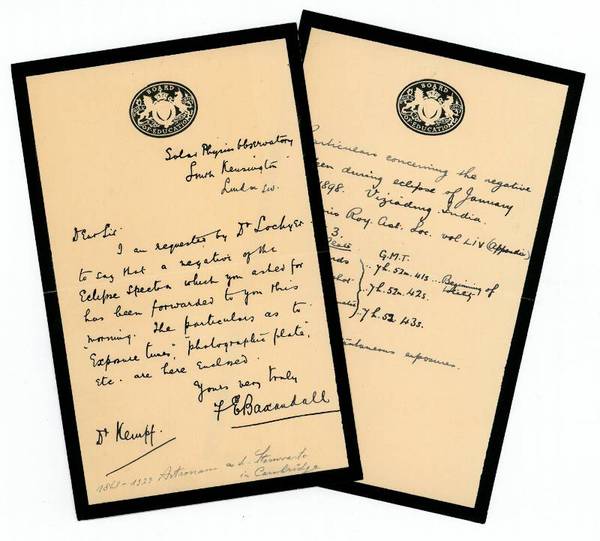 BOARD
OF EDUCATION
Solar Physics Observatory
South Kensington
London SW.
Dear Sir.
I am requested by Dr Lockyer
to say that a negative of the
Eclipse Spectra which you asked for
has been forwarded to you this
morning. The particulars as to
"Exposure times", photographic plate,
etc. are here enclosed.
Yours very truly
F E Baxandall
Dr Kempf.
1868-1929 Astronom a. d. Sternwarte
in Cambridge
BOARD
OF EDUCATION
Particulars concerning the negative
during eclipse of January
1898. Viziadrug. India.
Roy. Ast. Soc. vol LIV (Appendix)
3.
G.M.T.
7h. 52m. 41s... Beginning of
7h. 52m. 42s.
7h. 52 43s.
exposures.